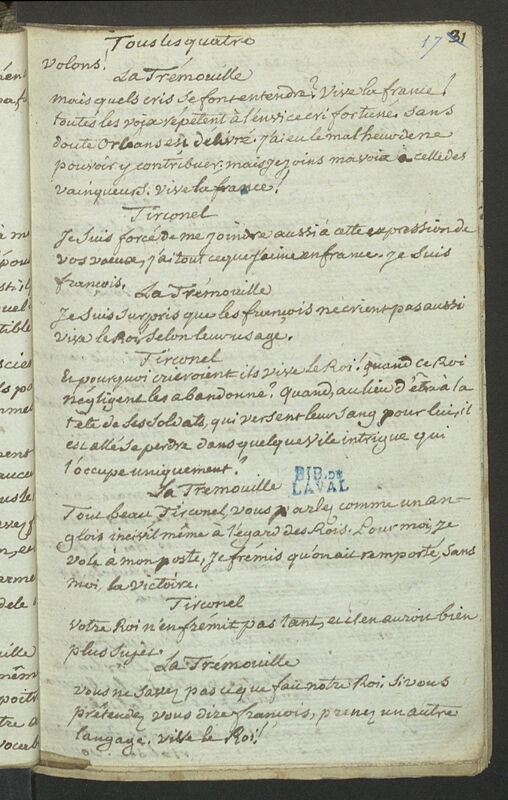 Tous les quatre
31
17
volons!
La Trémouille
mais quels cris se font entendre? Vive la france!
toutes les voix repetent à l'envi ce cri fortuné. Sans
doute Orleans est délivré. j'ai eu le malheur de ne
pouvoir y contribuer. mais je joins ma voix à celle des
vainqueurs. vive la france!
Tirconel
Je suis forcé de me joindre aussi à cette expression de
vos vœux, j'ai tout ce que j'aime en france. je suis
françois.
La Trémouille
Je suis surpris que les françois ne crient pas aussi
vive le Roi selon leur usage.
Tirconel
Et pourquoi crieroient ils vive le Roi! quand ce Roi
négligent les abandonne? Quand, au lieu d'être à la
tête de ses soldats, qui versent leur sang pour lui, il
est allé se perdre dans quelque vile intrigue qui
l'occupe uniquement?
La Trémouille
BIB. DE
LAVAL
Tout beau Tirconel, vous parlez comme un an-
glois incivil même à l'égard des Rois. Pour moi, je
vole à mon poste. Je frémis qu'on ait remporté, sans
moi, la victoire.
Tirconel
Votre Roi n'en frémit pas tant, et il en auroit bien
plus sujet.
La Trémouille
vous ne savez pas ce que fait notre Roi. Si vous
prétendez vous dire françois, prenez un autre
langage. vive le Roi!